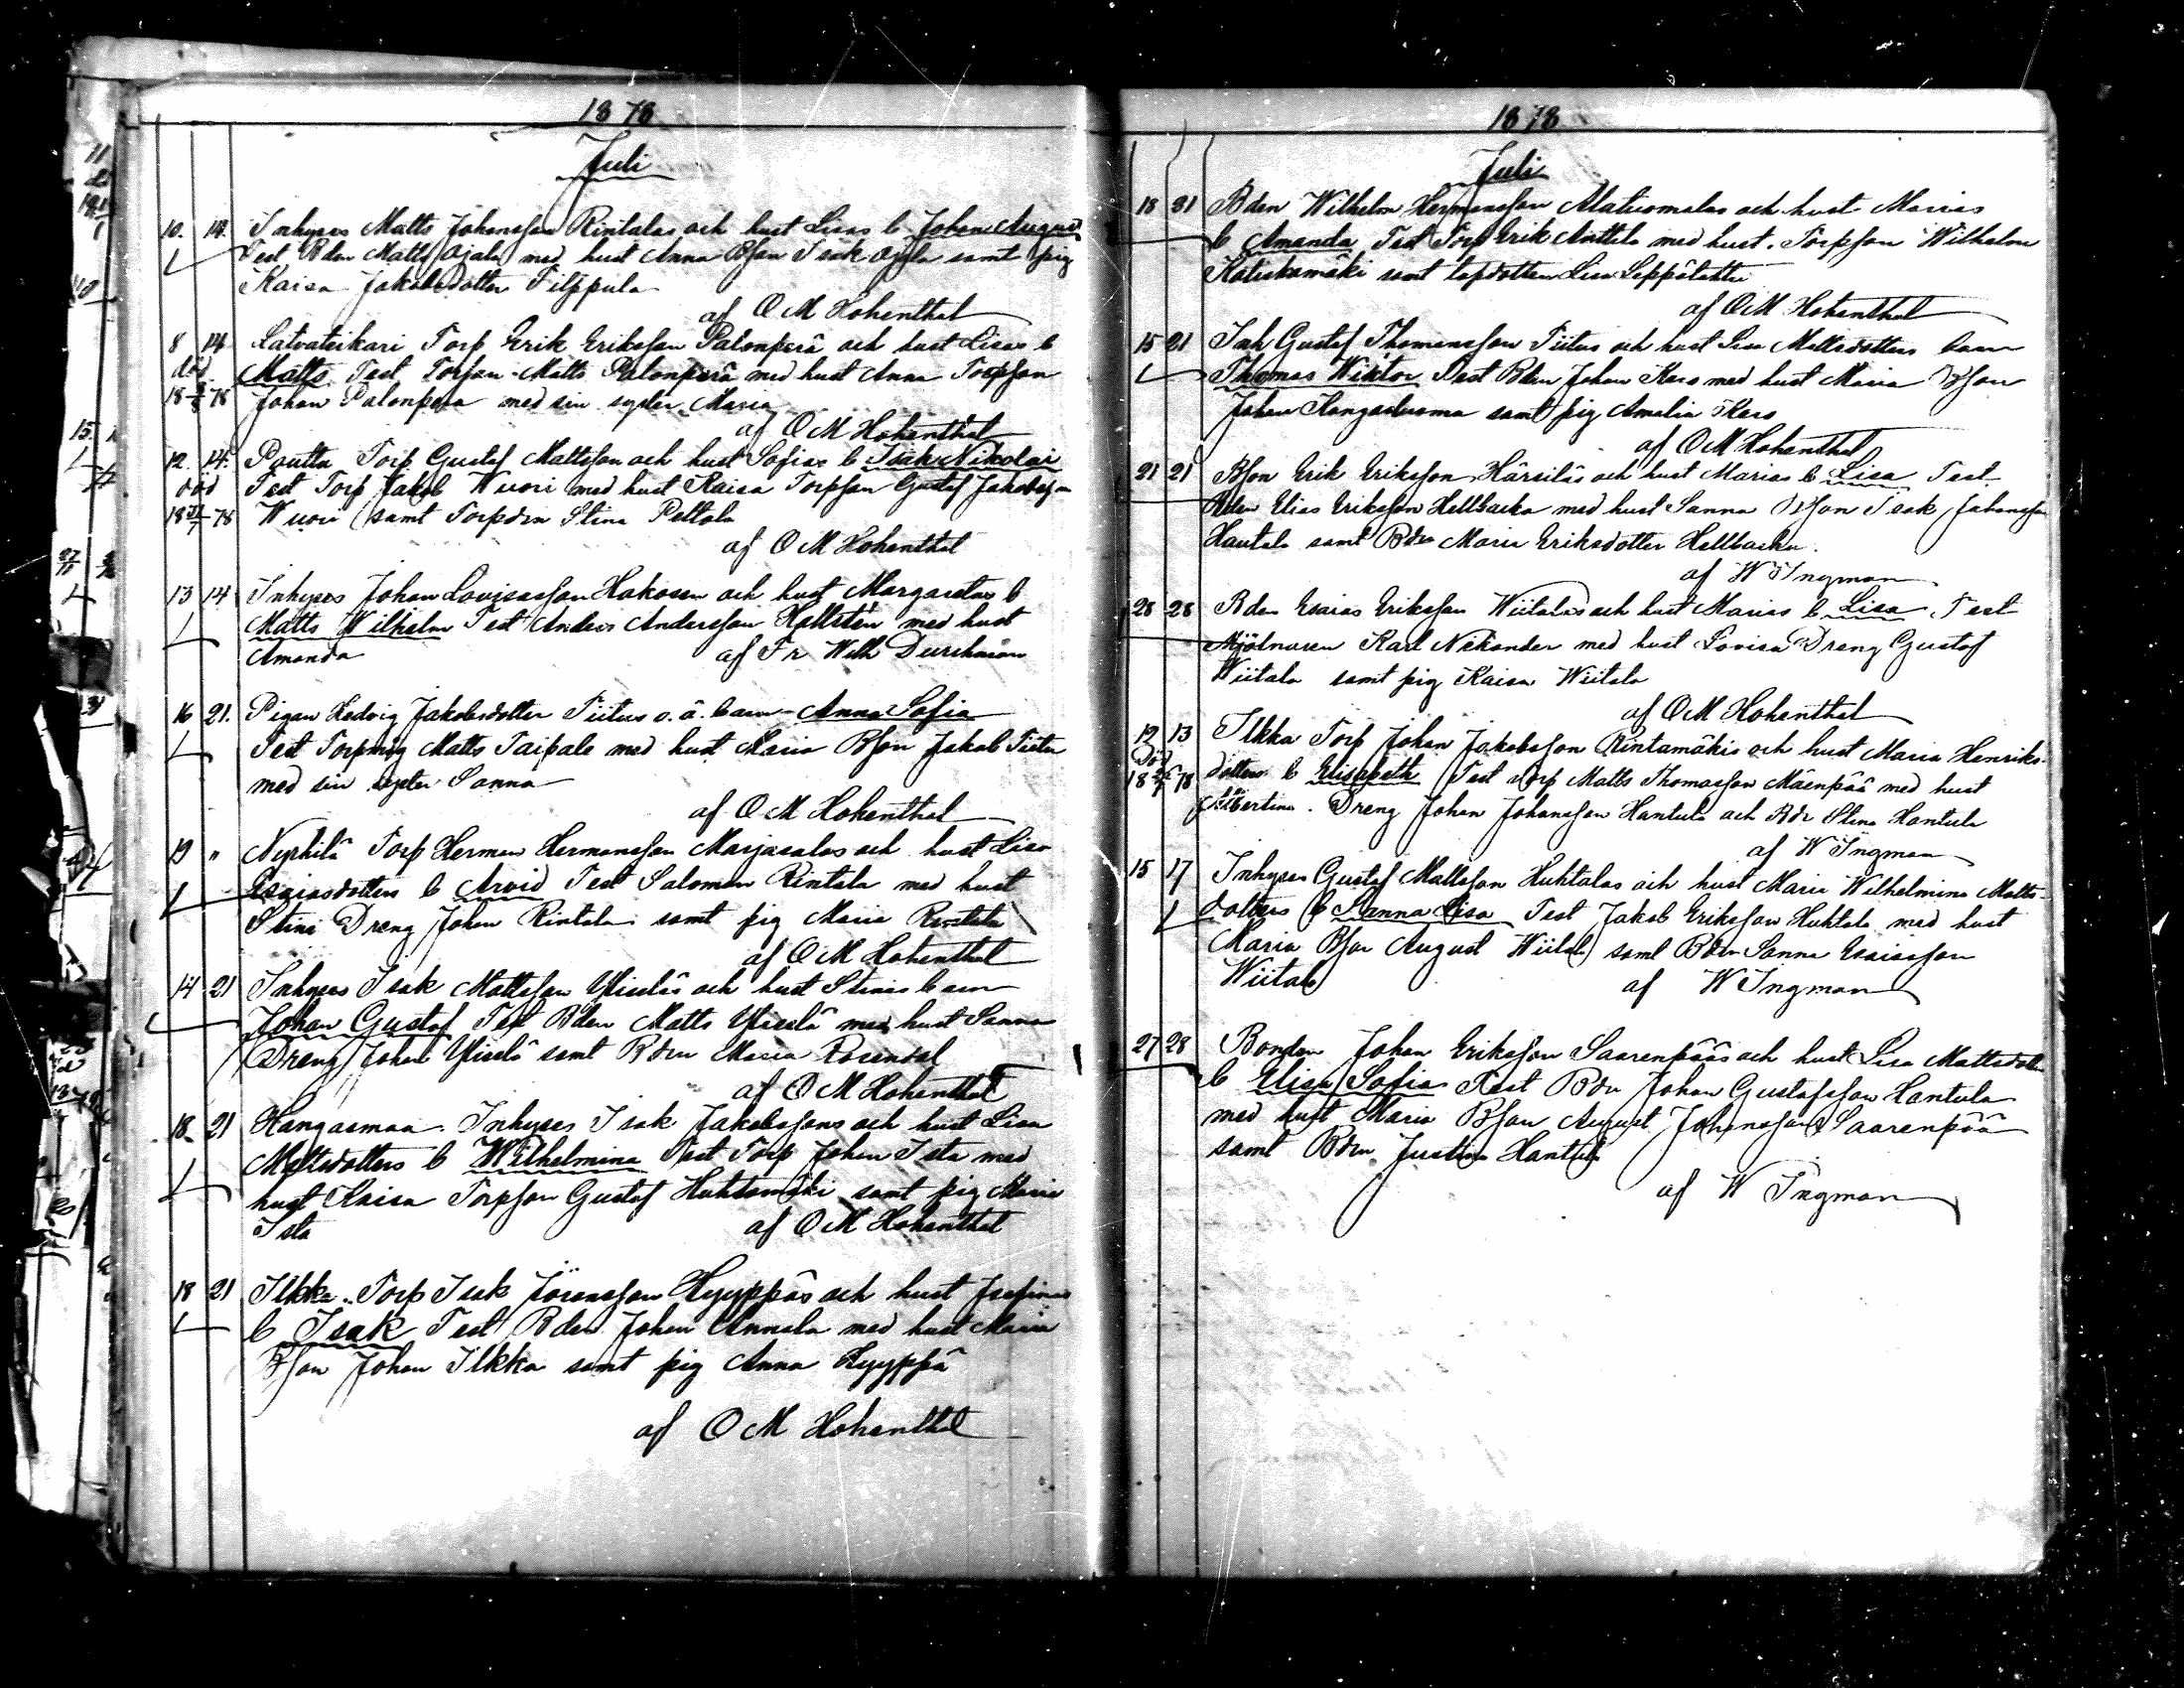 1878
Juli
10. 14. Inhyses Matts Johansson Rintalas och hust Lisas b Johan August
Test Bden Matts Ojala med hust Anna Bson Isak Ojala samt pig
Kaisa Jakobsdotter Filppula
af O M Hohenthal
8 14 Latvateikari Torp Erik Eriksson Palonperä och hust Lisas b
död Matts Test Torpson Matts Palonperä med hust Anna Torpson
18 78 Johan Palonperä med sin syster Maria
af O M Hohenthal
12. 14. Pouttu Torp Gustaf Mattsson och hust Sofias b Isak Nikolai
död Test Torp Jakob Wuori med hust Kaisa Torpson Gustaf Jakobsson
18 78 Wuori samt Torpdrn Stina Peltola
af O M Hohenthal
13 14 Inhyses Johan Lovisasson Hakosen och hust Margaretas b
Matts Wilhelm Test Anders Andersson Hallstén med hust
Amanda af Fr Wilh Durchman
16 21. Pigan Hedvig Jakobsdotter Tiitus o. ä. barn Anna Sofia
Test Torpmåg Matts Taipale med hust Maria Bson Jakob Tiitu
med sin syster Sanna
af O M Hohenthal
19 " Nyrhilä Torp Herman Hermansson Marjasalos och hust Lisa
Esaiasdotters b Arvid Test Salomon Rintala med hust
Stina Dreng Johan Rintala samt pig Maria Rintala
af O M Hohenthal
14 21 Inhyses Isak Mattsson Yliseläs och hust Stinas barn
Johan Gustaf Test Bden Matts Yliselä med hust Sanna
Dreng Johan Yliselä samt Bdrn Maria Rosendal
af O M Hohenthal
18 21 Kangasmaa Inhyses Isak Jakobssons och hust Lisa
Mattsdotters b Wilhelmina Test Torp Johan Ista med
hust Kaisa Torpson Gustaf Huhtamäki samt pig Maria
Ista af O M Hohenthal
18 21 Ilkka Torp Isak Jöransson Hyyppäs och hust Josefinas
b Isak Test Bden Johan Annala med hust Maria
Bson Johan Ilkka samt pig Anna Hyyppä
af O M Hohenthal
1878
Juli
18 21 Bden Wilhelm Hermansson Alatuomalas och hust Marias
b Amanda Test Torp Erik Anttila med hust. Torpson Wilhelm
Katuskamäki samt Lisa Leppälahti
af O M Hohenthal
15 21 Inh Gustaf Thomasson Tiitus och hust Lisa Mattsdotters barn
Thomas Wiktor Test Bden Johan Karo med hust Maria Bson
Johan Kangasluoma samt pig Amalia Karo
af O M Hohenthal
21 21 Bson Erik Eriksson Härsiläs och hust Marias b Lisa Test
Bden Elias Eriksson Hellbacka med hust Sanna Bson Isak Johansson
Hantula samt Bdr Maria Eriksdotter Hellbacka.
af W Ingman
28 28 Bden Esaias Eriksson Wiitalas och hust Marias b Lisa Test
Mjölnaren Karl Nikander med hust Lovisa Dreng Gustaf
Wiitala samt pig Kaisa Wiitala
af O M Hohenthal
12 13 Ilkka Torp Johan Jakobsson Rintamäkis och hust Maria Henriks-
Död dotters b Elisabeth Test Torp Matts Thomasson Mäenpää med hust
18 78 Albertina. Dreng Johan Johansson Hantula och Bdr Stina Hantula
af W Ingman
15 17 Inhyses Gustaf Mattsson Huhtalas och hust Maria Wilhelmina Matts-
dotters b Sanna Lisa Test Jakob Eriksson Huhtala med hust
Maria Bson August Wiitala samt Bdrn Sanna Esaiasson
Wiitala af W Ingman
27 28 Bonden Johan Eriksson Saarenpääs och hust Lisa Mattsdott
b Elisa Sofia Test Bdn Johan Gustafsson Hantula
med hust Maria Bson August Johansson Saarenpää
samt Bdrn Justina Hantula
af W Ingman